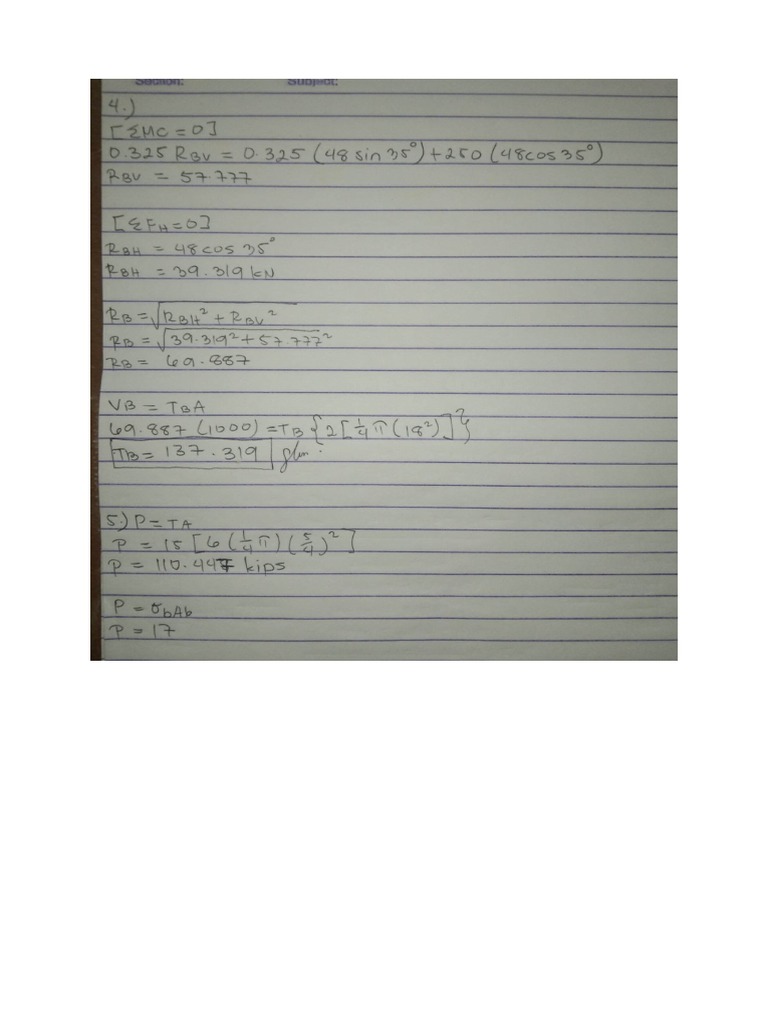 Section: Subject:
4.)
[ΣMC = 0]
0.325 RBV = 0.325 (48 sin 35°) + 250 (48cos 35°)
RBV = 57.777
[ΣFH = 0]
RBH = 48 cos 35°
RBH = 39.319 kN
RB = √RBH² + RBV²
RB = √39.319² + 57.777²
RB = 69.887
VB = TBA
69.887 (1000) = TB {2[¼π(18²)]}
TB = 137.319
5.) P = TA
P = 15 [6(¼π)(5/4)²]
P = 110.447 kips
P = σbAb
P = 17